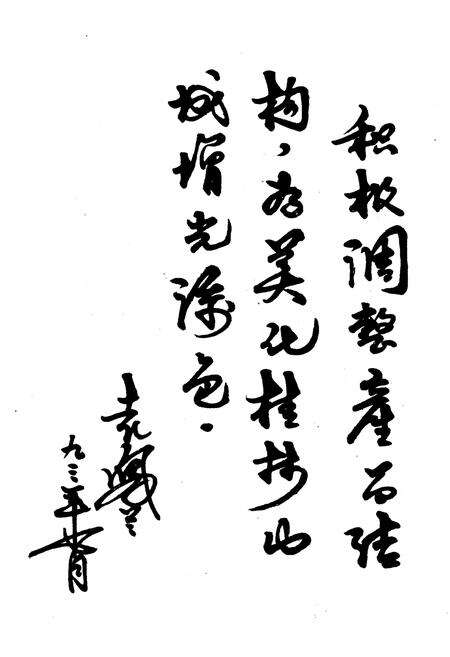 积极调整產品结
构，为美化桂林山
城增光添色．
袁鳳兰
九三年月